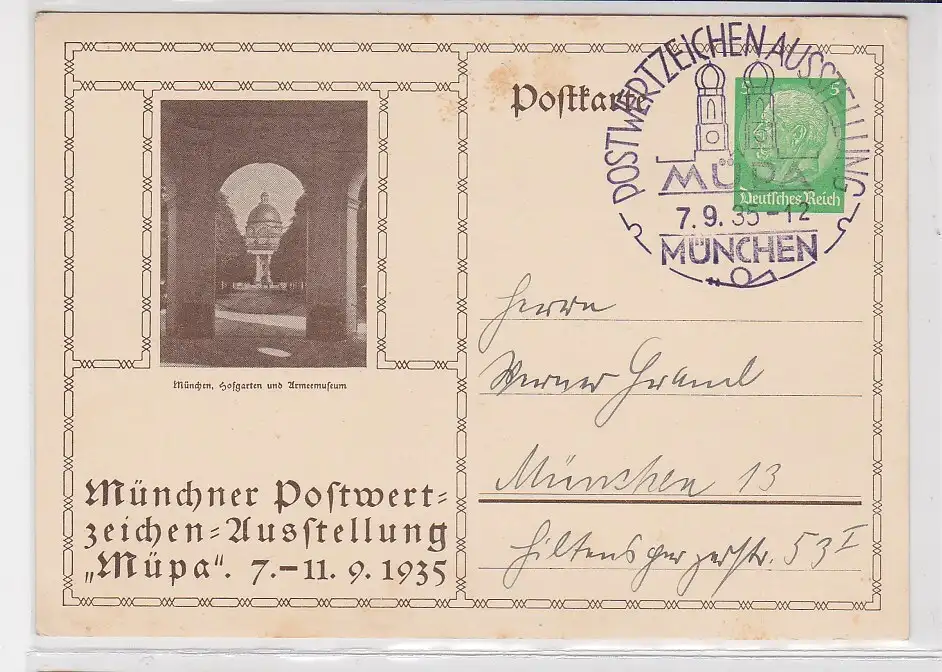 Postkarte
POSTWERTZEICHEN AUSSTELLUNG
MÜPA
7.9.35-12
MÜNCHEN
5 5
Deutsches Reich
München, Hofgarten und Armeemuseum
Münchner Postwert=
zeichen=Ausstellung
„Müpa“. 7.–11. 9. 1935
Herrn
Werner
München 13
Hiltenspergerstr. 53 I